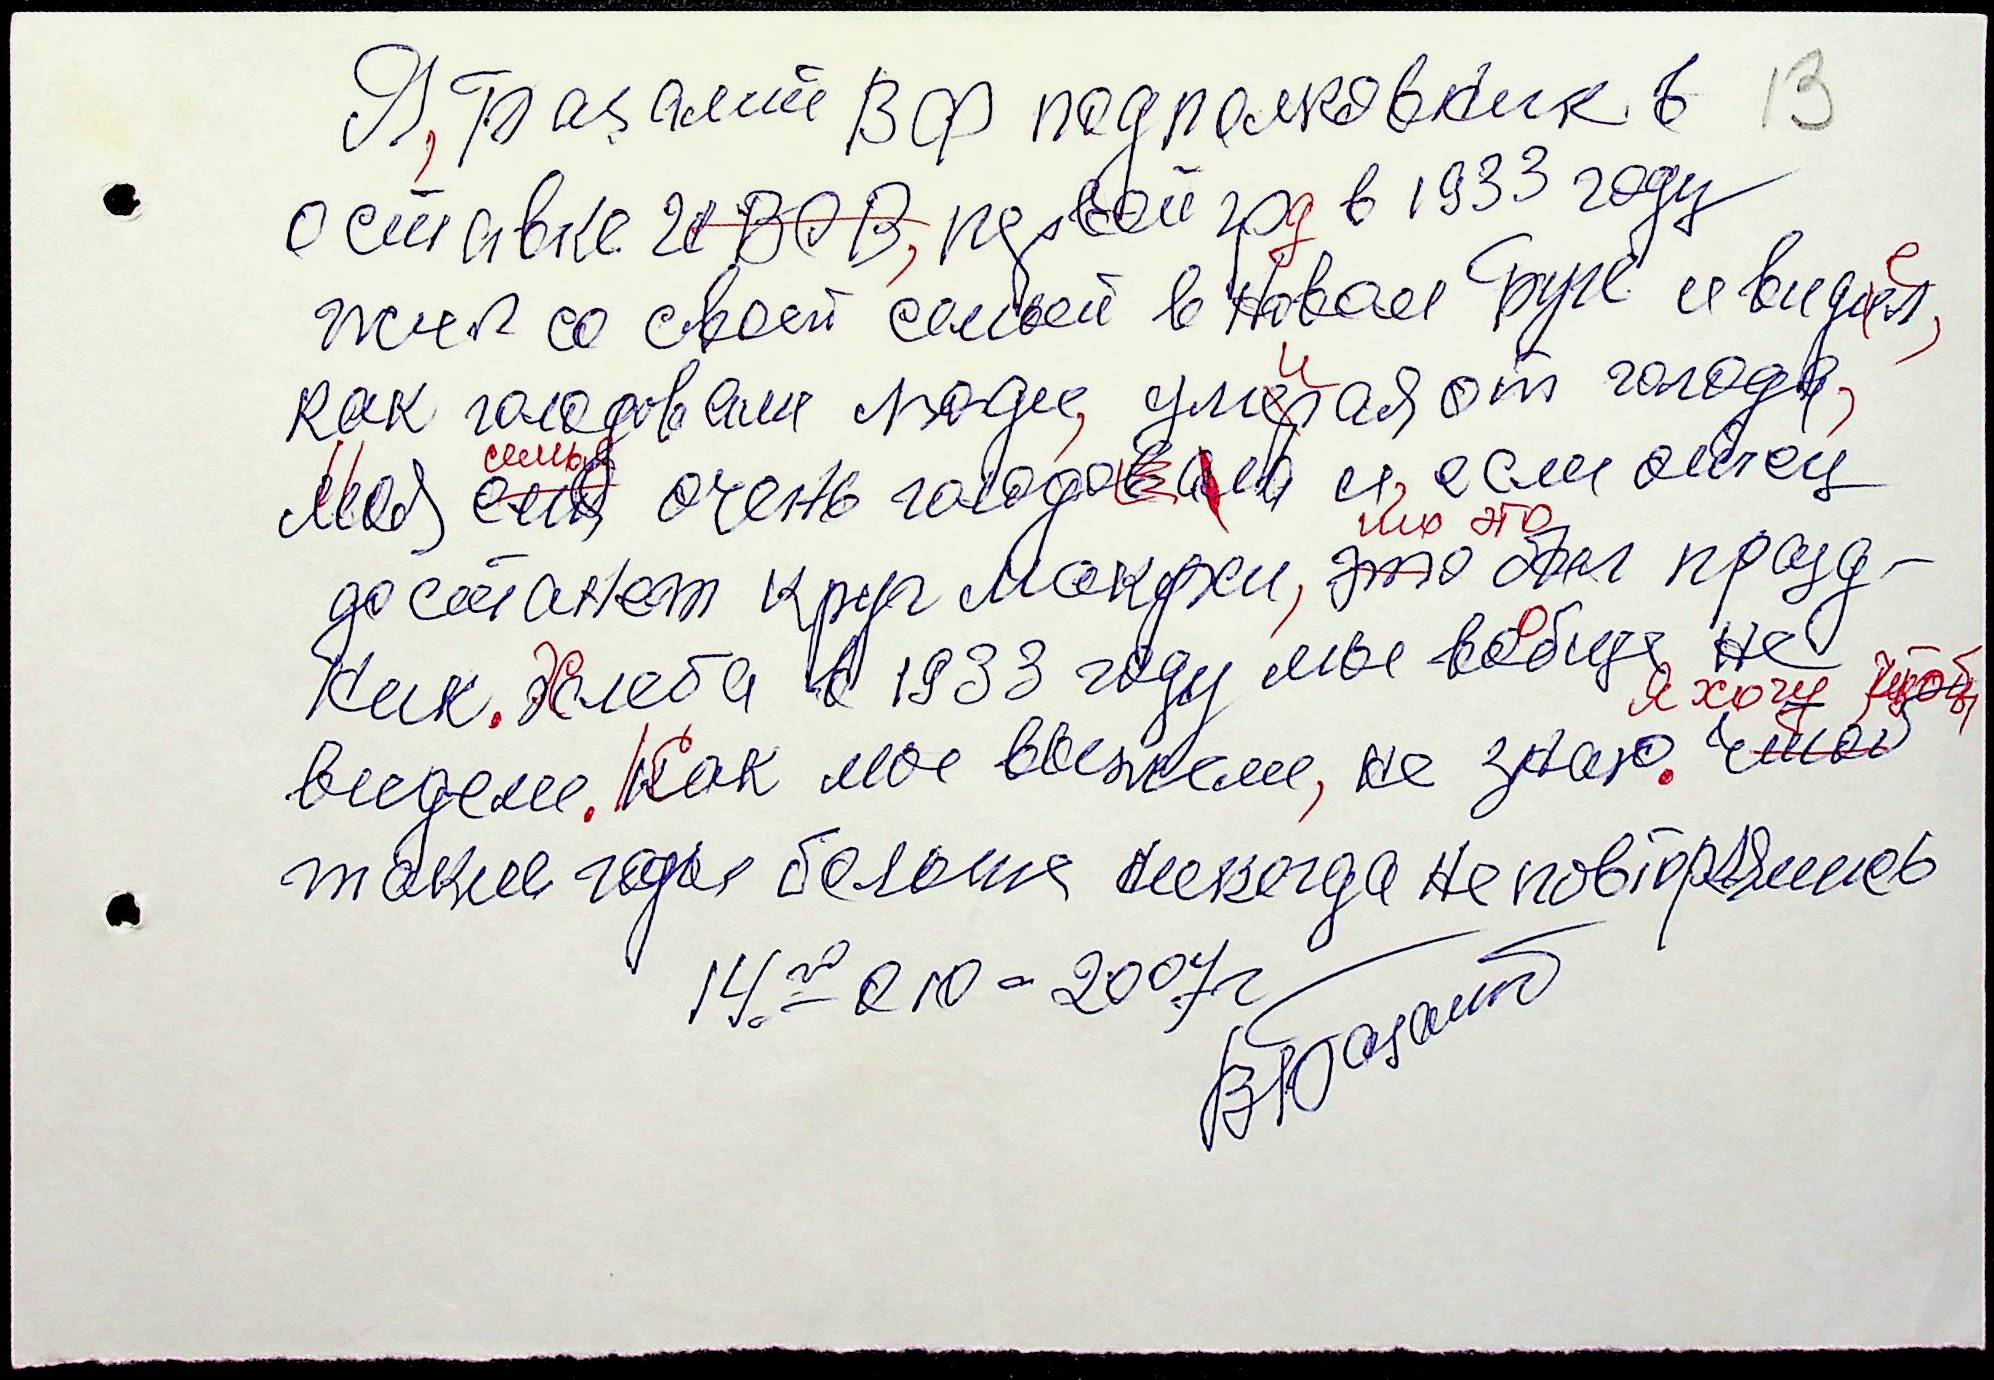 Я, Трацалит ВФ подполковник в 13
оставке и ВОВ, первой гр д в 1933 году
жил со своей семьей в Новом Буге и видел,
е
как голодовали люди, умерая от голода,
и
Моя семья очень голодовала и, если отец
семья
достанет круг Макухи, это был празд-
то это
ник. Хлеба в 1933 году мы вобще не
о
видели. Как мы выжили, не знаю. чтоб
Я хочу чтобы
такие годы больше никогда не повторялись
14.го 010 - 2007г